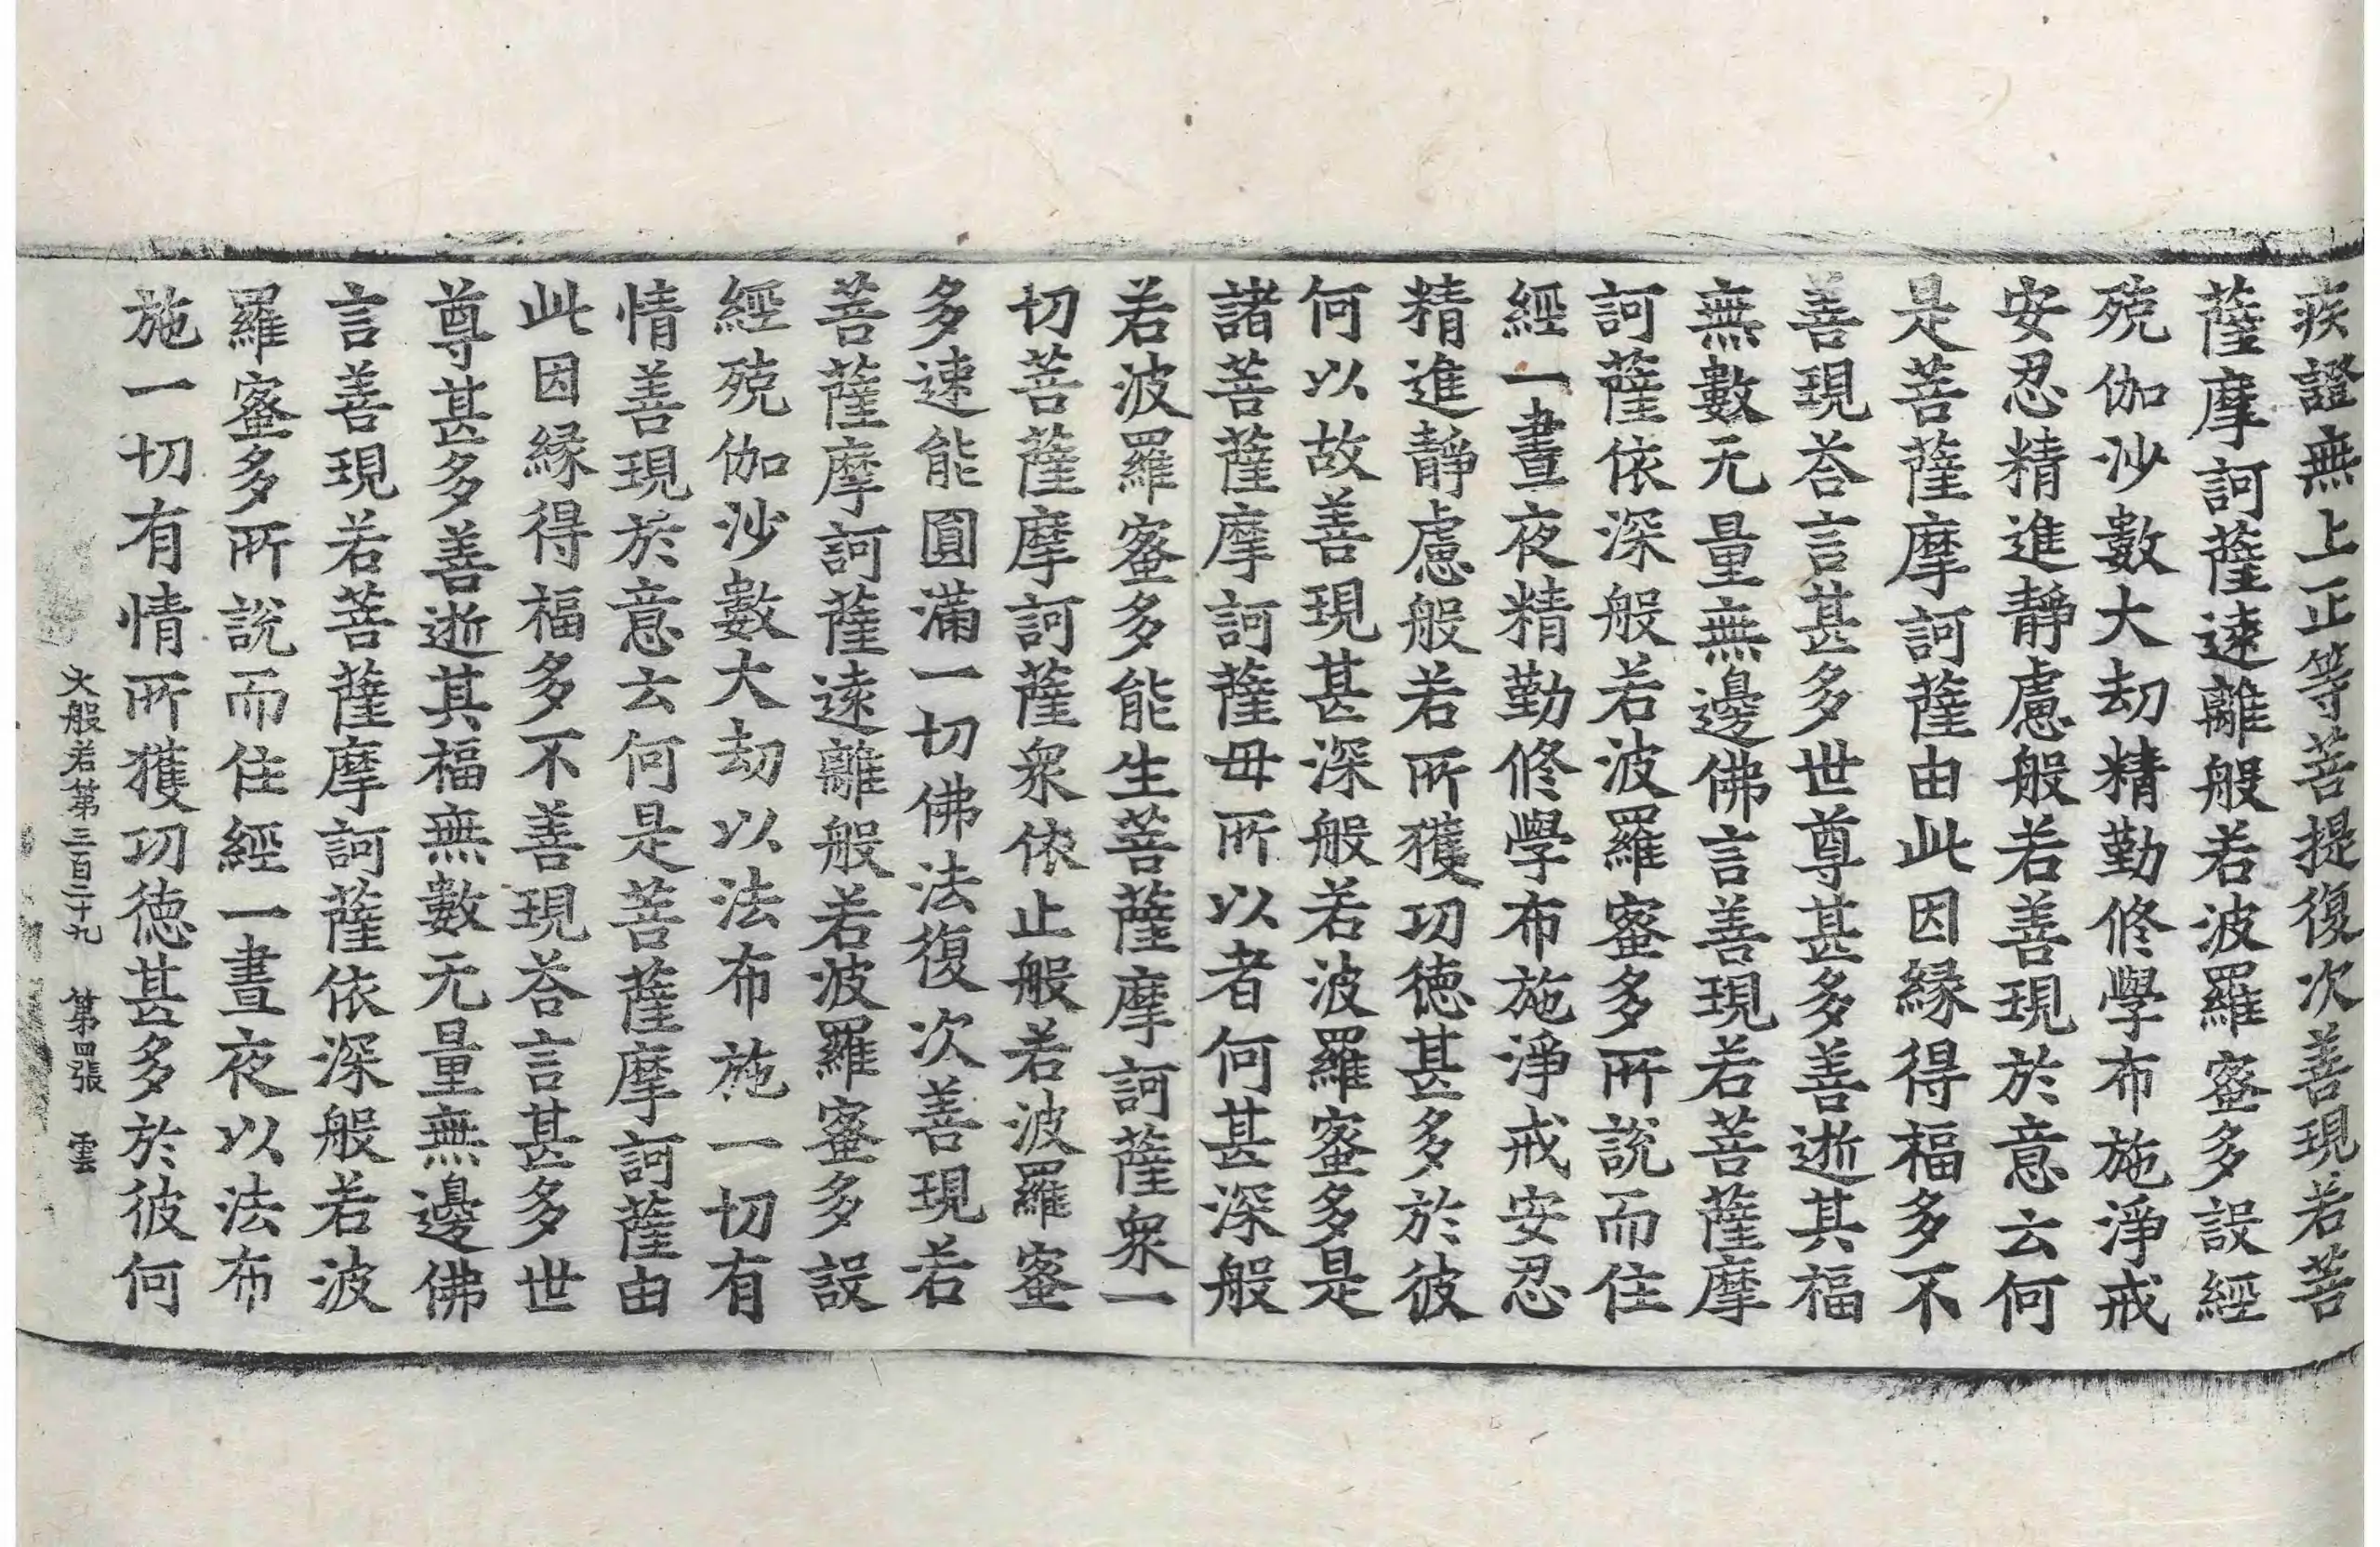 疾證無上正等菩提復次善現若菩
薩摩訶薩遠離般若波羅蜜多設經
殑伽沙數大劫精勤修學布施淨戒
安忍精進靜慮般若善現於意云何
是菩薩摩訶薩由此因縁得福多不
善現荅言甚多世尊甚多善逝其福
無數无量無邊佛言善現若菩薩摩
訶薩依深般若波羅蜜多所說而住
經一晝夜精勤修學布施淨戒安忍
精進靜慮般若所獲功德甚多於彼
何以故善現甚深般若波羅蜜多是
諸菩薩摩訶薩母所以者何甚深般
若波羅蜜多能生菩薩摩訶薩衆一
切菩薩摩訶薩衆依止般若波羅蜜
多速能圓滿一切佛法復次善現若
菩薩摩訶薩遠離般若波羅蜜多設
經殑伽沙數大劫以法布施一切有
情善現於意云何是菩薩摩訶薩由
此因縁得福多不善現荅言甚多世
尊甚多善逝其福無數无量無邊佛
言善現若菩薩摩訶薩依深般若波
羅蜜多所說而住經一晝夜以法布
施一切有情所獲功德甚多於彼何
大般若第三百二十九 第四張 雲